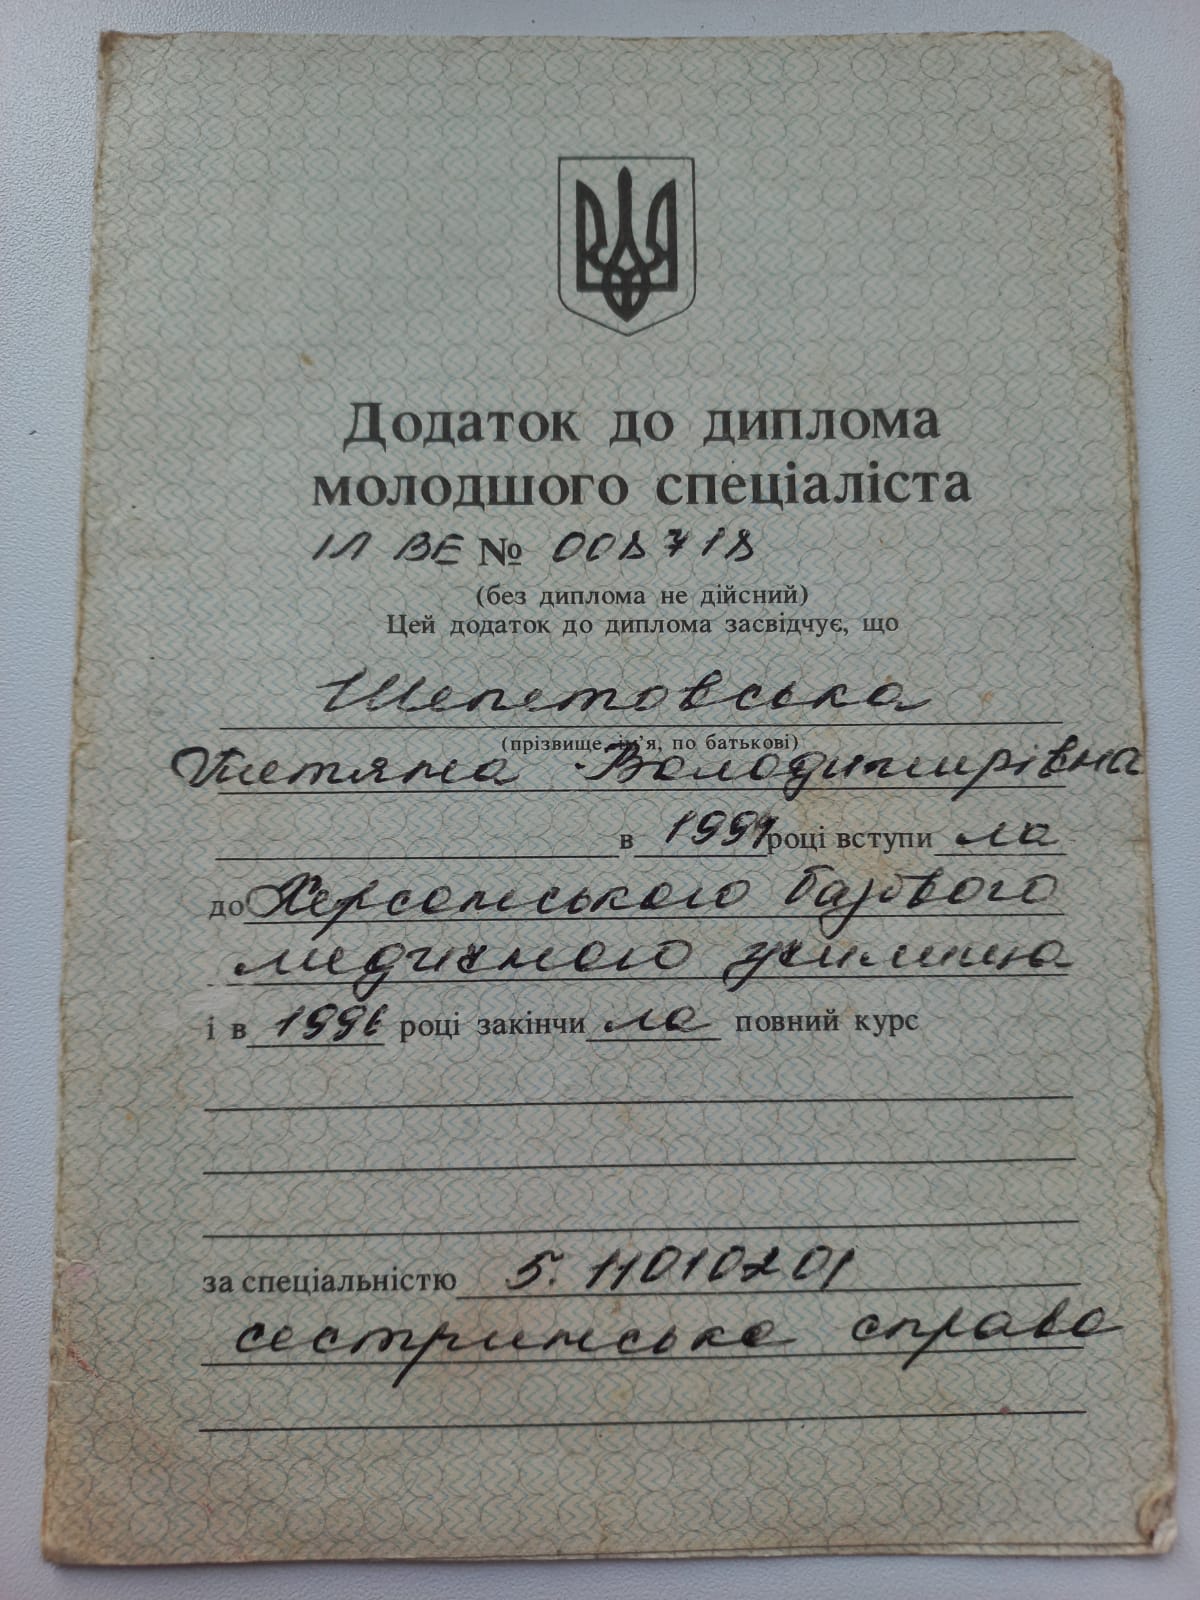 Додаток до диплома
молодшого спеціаліста
ІЛ ВЕ № 008718
(без диплома не дійсний)
Цей додаток до диплома засвідчує, що
Шепетовська
(прізвище, ім'я, по батькові)
Тетяна Володимирівна
в 1991 році вступи ла
до Херсонського базового
медичного училища
і в 1996 році закінчи ла повний курс
за спеціальністю 5. 11010201
сестринська справа